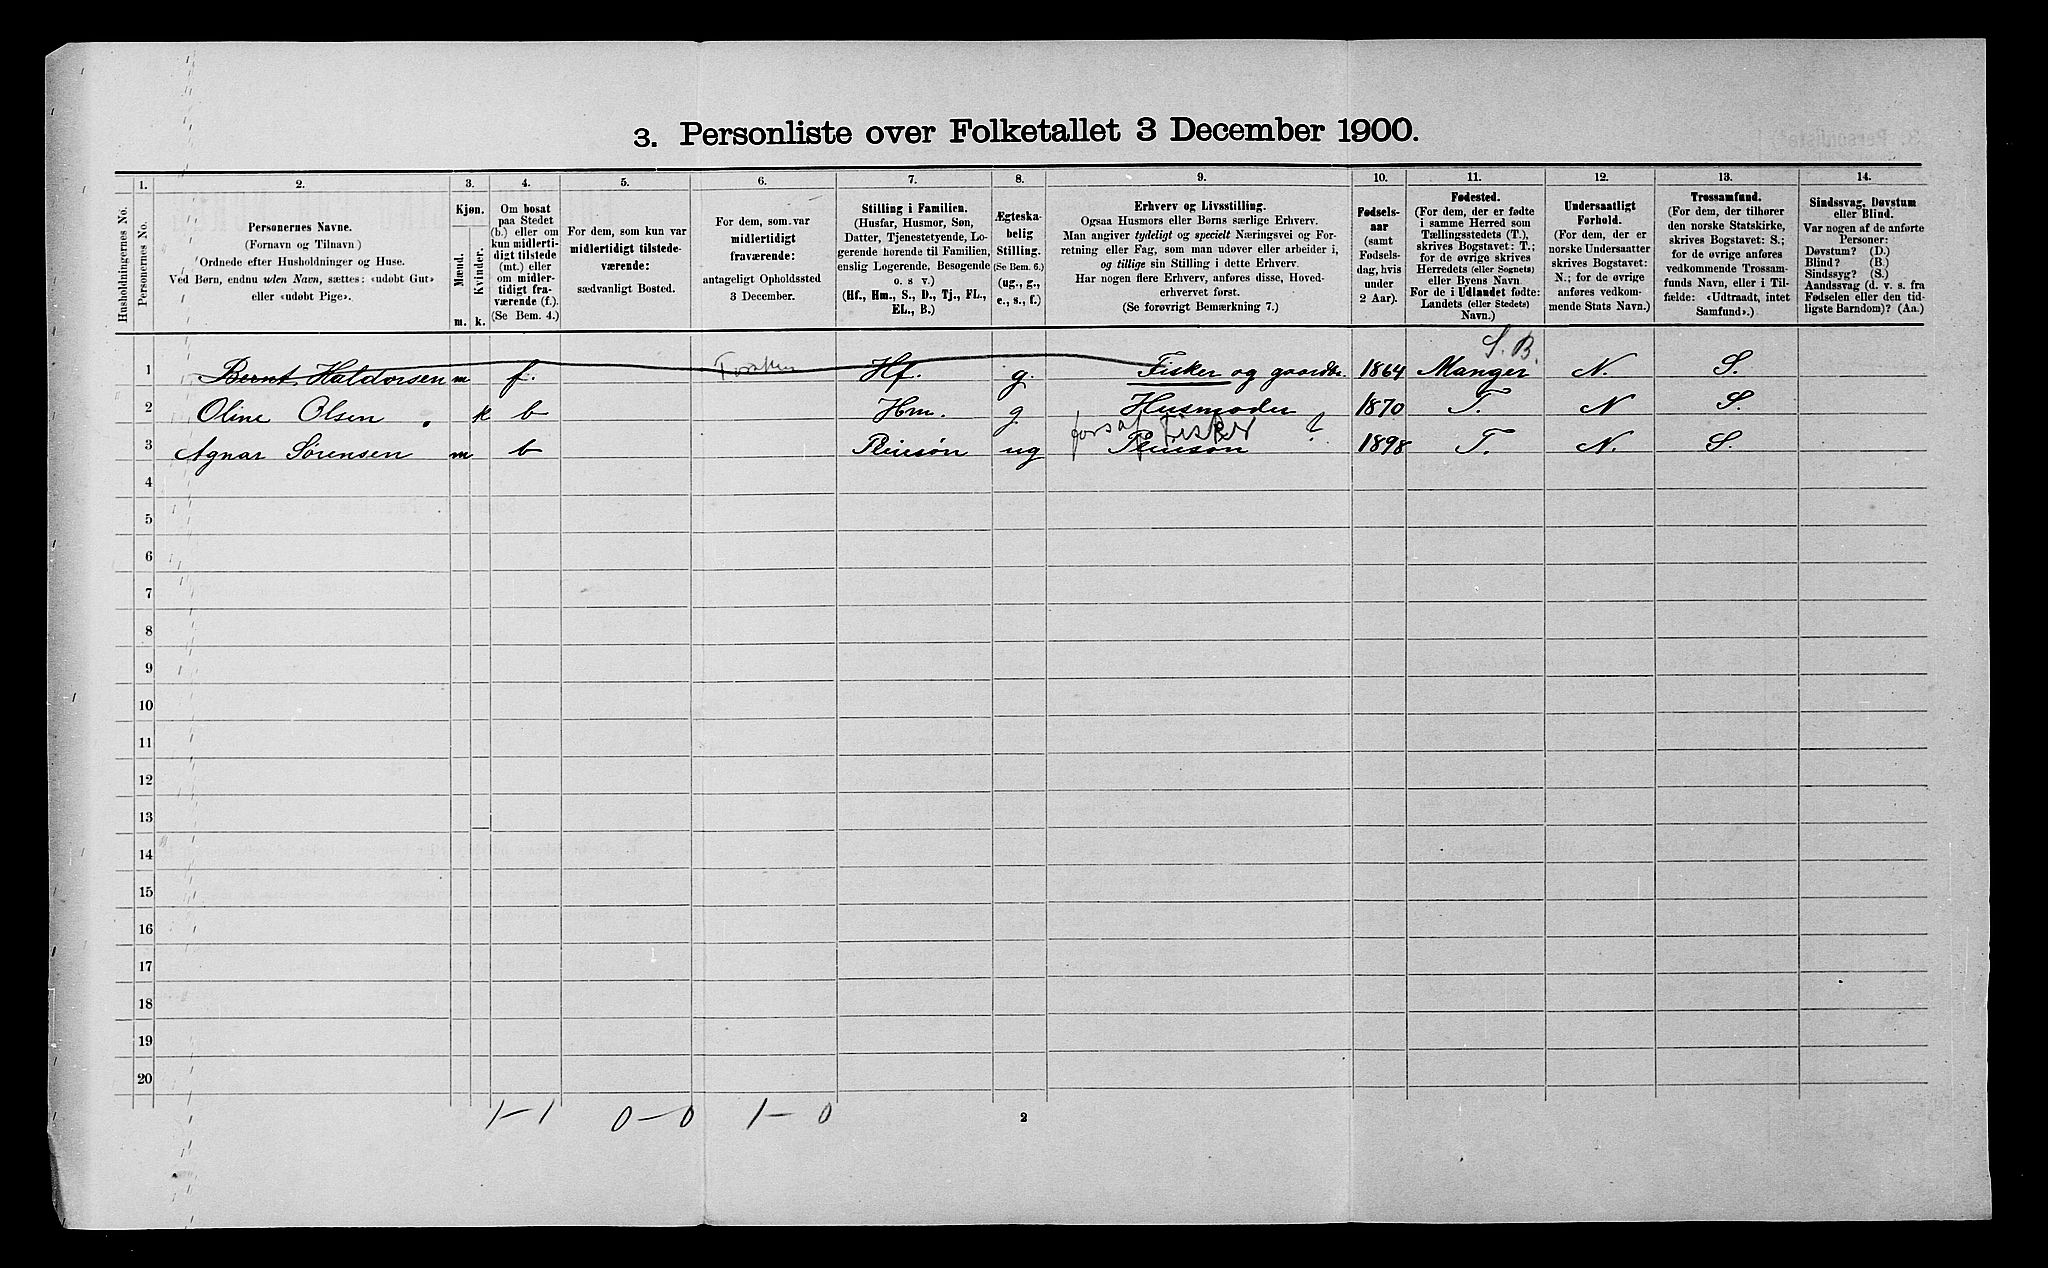 3. Personliste over Folketallet 3 December 1900.
1. 2. 3. 4. 5. 6. 7. 8. 9. 10. 11. 12. 13. 14.
Husholdningernes No.
Personernes No.
Personernes Navne.
(Fornavn og Tilnavn)
Ordnede efter Husholdninger og Huse.
Ved Børn, endnu uden Navn, sættes: «udøbt Gut»
eller «udøbt Pige».
Kjøn.
Mænd.
Kvinder.
m. k.
Om bosat
paa Stedet
(b.) eller om
kun midlerti-
digt tilstede
(mt.) eller
om midler-
tidigt fra-
værende (f.).
(Se Bem. 4.)
For dem, som kun var
midlertidigt tilstede-
værende:
sædvanligt Bosted.
For dem, som var
midlertidigt
fraværende:
antageligt Opholdssted
3 December.
Stilling i Familien.
(Husfar, Husmor, Søn,
Datter, Tjenestetyende, Lo-
gerende hørende til Familien,
enslig Logerende, Besøgende
o. s v.)
(Hf., Hm., S., D., Tj., FL.,
EL., B.)
Ægteska-
belig
Stilling.
(Se Bem. 6.)
(ug., g.,
e., s., f.)
Erhverv og Livsstilling.
Ogsaa Husmors eller Børns særlige Erhverv.
Man angiver tydeligt og specielt Næringsvei og For-
retning eller Fag, som man udøver eller arbeider i,
og tillige sin Stilling i dette Erhverv.
Har nogen flere Erhverv, anføres disse, Hoved-
erhvervet først.
(Se forøvrigt Bemærkning 7.)
Fødsels-
aar
(samt
Fødsels-
dag, hvis
under
2 Aar).
Fødested.
(For dem, der er fødte
i samme Herred som
Tællingsstedets (T.),
skrives Bogstavet: T.;
for de øvrige skrives
Herredets (eller Sognets)
eller Byens Navn.
For de i Udlandet fødte:
Landets (eller Stedets)
Navn.)
Undersaatligt
Forhold.
(For dem, der er
norske Undersaatter
skrives Bogstavet:
N.; for de øvrige
anføres vedkom-
mende Stats Navn.)
Trossamfund.
(For dem, der tilhører
den norske Statskirke,
skrives Bogstavet: S.;
for de øvrige anføres
vedkommende Trossam-
funds Navn, eller i Til-
fælde: «Udtraadt, intet
Samfund».)
Sindssvag, Døvstum
eller Blind.
Var nogen af de anførte
Personer:
Døvstum? (D.)
Blind? (B.)
Sindssyg? (S.)
Aandssvag (d. v. s. fra
Fødselen eller den tid-
ligste Barndom)? (Aa.)
S. B.
1 Bernt Haldorsen m f. Hf. g. Fisker og gaardbr. 1864 Manger N. S.
2 Oline Olsen k b Hm. g Husmoder 1870 T. N S.
fors af Fisker ?
3 Agnar Sørensen m b Pleiesøn ug Pleiesøn 1898 T. N. S.
4
5
6
7
8
9
10
11
12
13
14
15
16
17
18
19
20
1-1 0-0 1-0
2